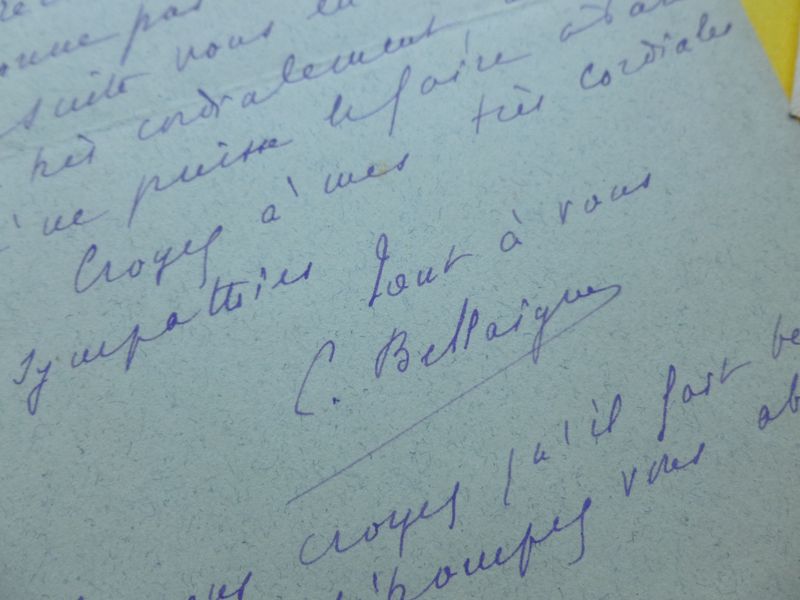 pas
suite vous en
très cordialement
ne puisse le faire
Croyez à mes très cordiales
sympathies tout à vous
C. Bellaigue
croyez qu'il fait be
vous ab